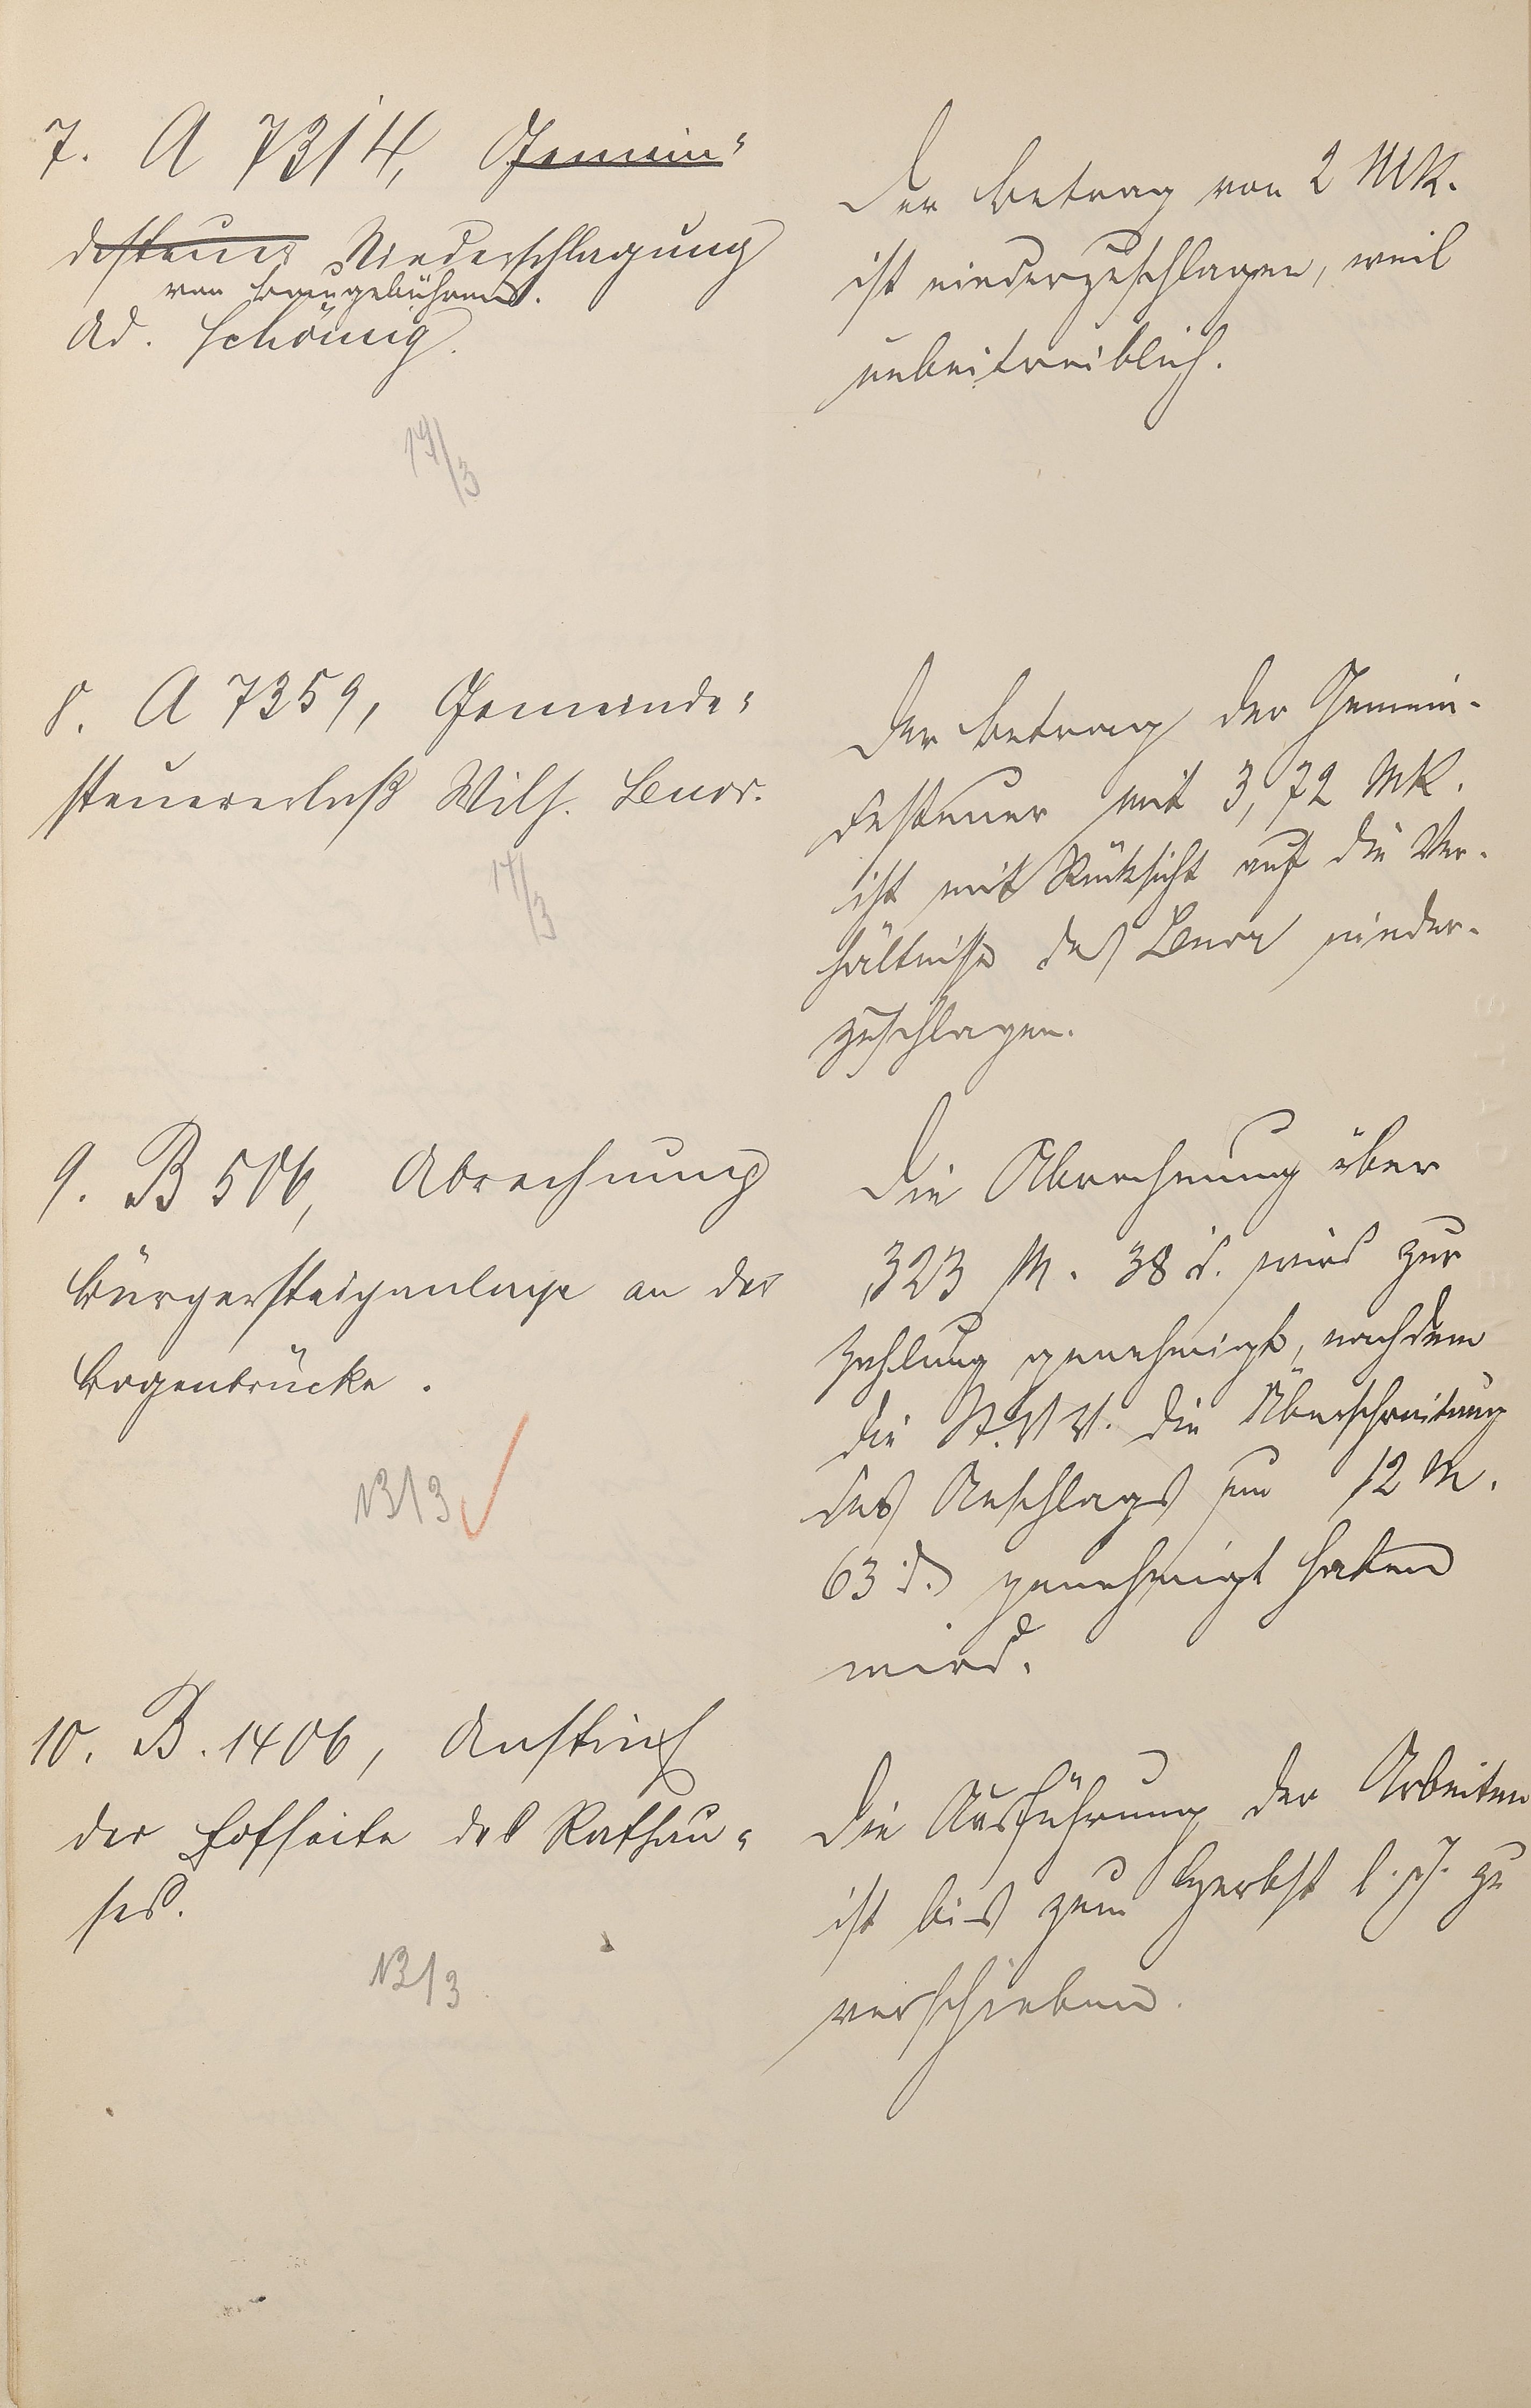 7. A 7314, Gemein-
desteuer Niederschlagung
von Baugebühren.
Ad. Schönig.
19/3
Der Betrag von 2 Mk.
ist niederzuschlagen, weil
unbeitreiblich.
8. A 7359, Gemeinde-
steuererlaß Wilh. Benor.
17/3
Der Betrag der Gemein-
desteuer mit 3,72 Mk.
ist mit Rücksicht auf die Ver-
hältnisse des Benor nieder-
zuschlagen.
9. B 506, Abrechnung
Bürgersteiganlage an der
Bogenbrücke.
13/3
Die Abrechnung über
323 M. 38 d. wird zur
Zahlung genehmigt, nachdem
die St.V.V. die Überschreitung
des Anschlags um 12 M.
63 d. genehmigt haben
wird.
10. B. 1406, Anstrich
der Hofseite des Rathau-
ses.
13/3
Die Ausführung der Arbeiten
ist bis zum Herbst l. J. zu
verschieben.